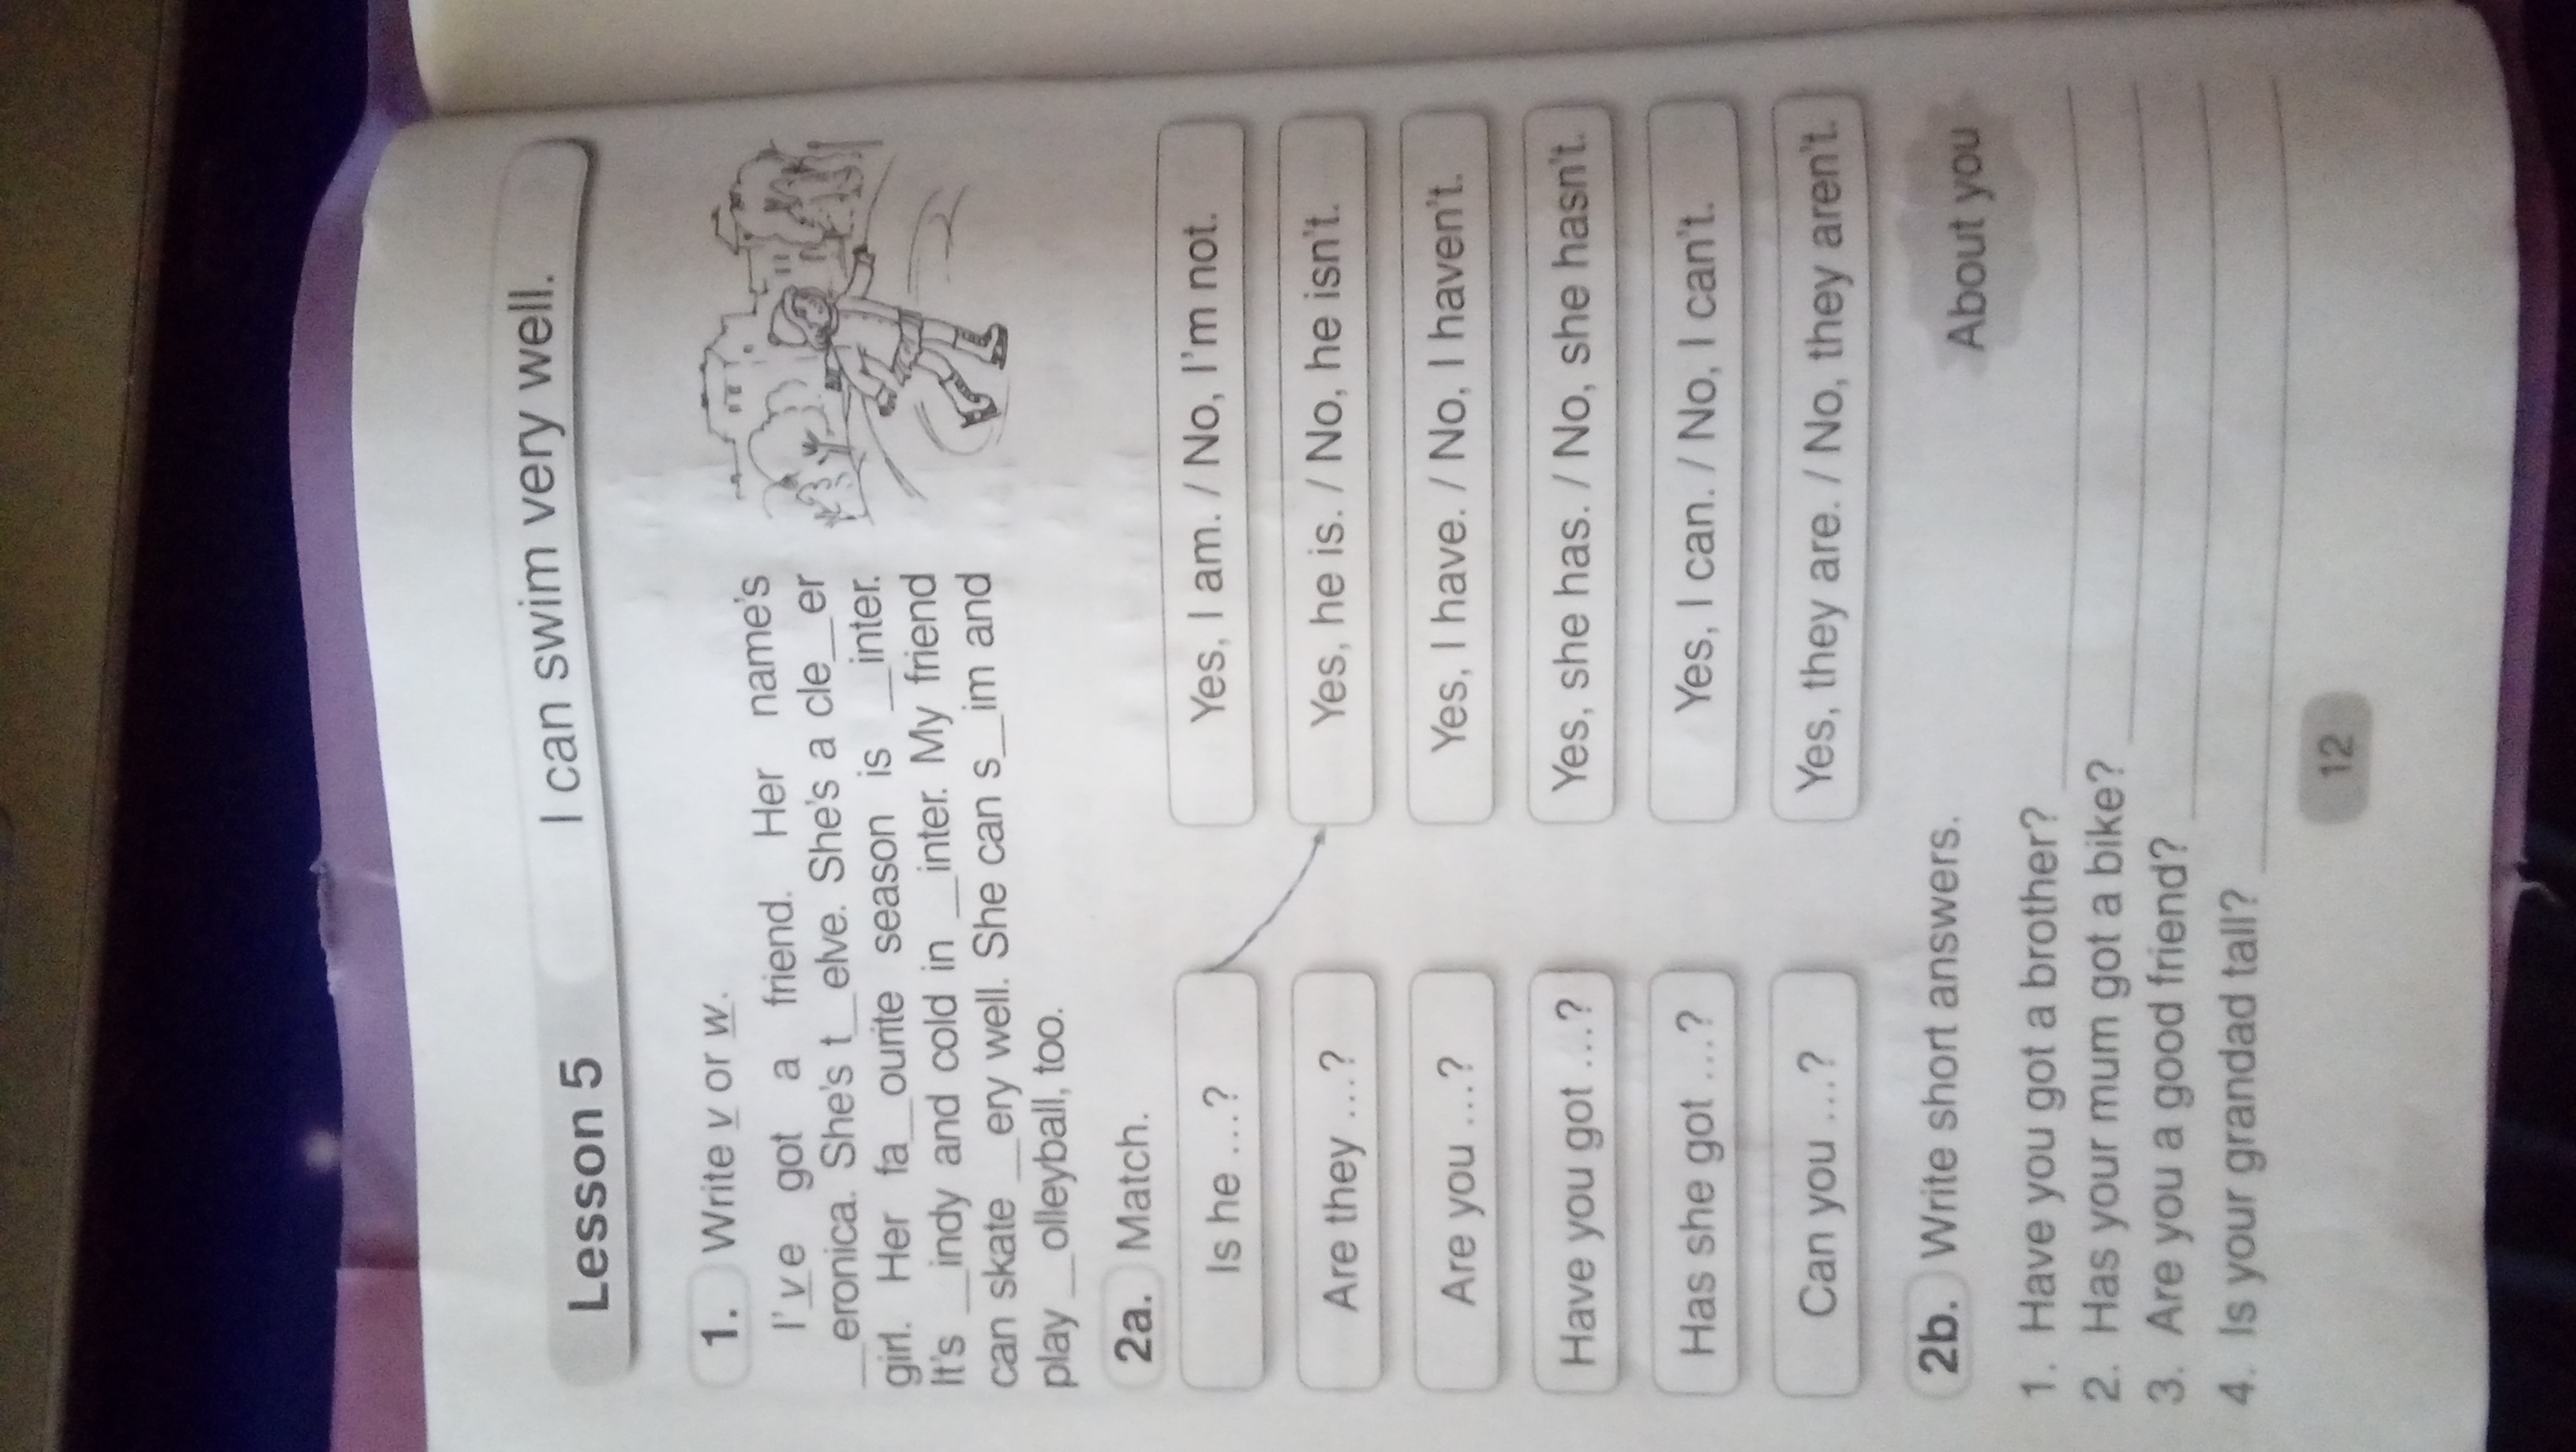 Lesson 5 I can swim very well.
1. Write v or w.
I'v e got a friend. Her name's
__eronica. She's t__elve. She's a cle__er
girl. Her fa__ourite season is __inter.
It's __indy and cold in __inter. My friend
can skate __ery well. She can s__im and
play __olleyball, too.
2a. Match.
Is he ...? Yes, I am. / No, I'm not.
Are they ...? Yes, he is. / No, he isn't.
Are you ...? Yes, I have. / No, I haven't.
Have you got ...? Yes, she has. / No, she hasn't.
Has she got ...? Yes, I can. / No, I can't.
Can you ...? Yes, they are. / No, they aren't.
2b. Write short answers. About you
1. Have you got a brother?
2. Has your mum got a bike?
3. Are you a good friend?
4. Is your grandad tall?
12